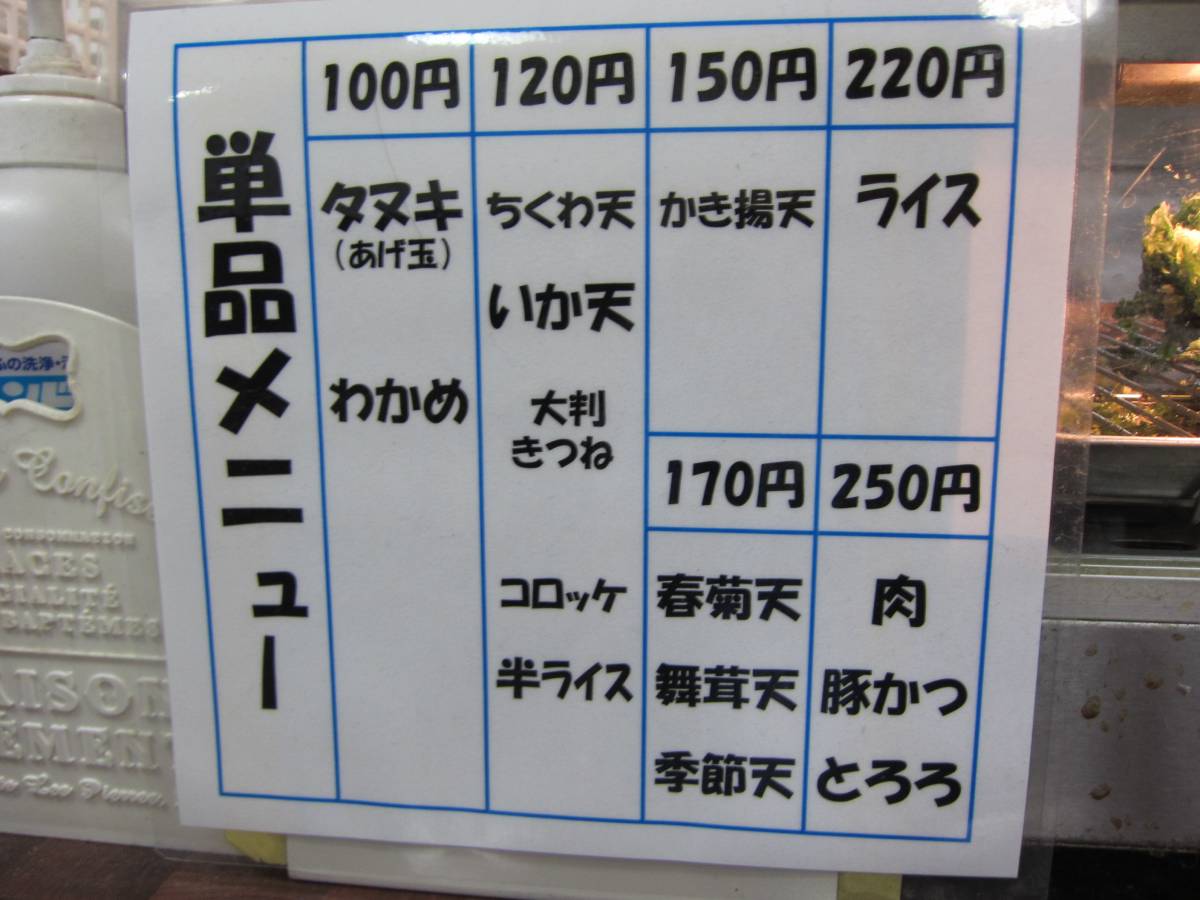 単品メニュー
100円
タヌキ
(あげ玉)
わかめ
120円
ちくわ天
いか天
大判
きつね
コロッケ
半ライス
150円
かき揚天
170円
春菊天
舞茸天
季節天
220円
ライス
250円
肉
豚かつ
とろろ
の洗浄・
Confis
CONSOMMASSION
ACES
CIALITÉ
BAPTÊMES
AISON